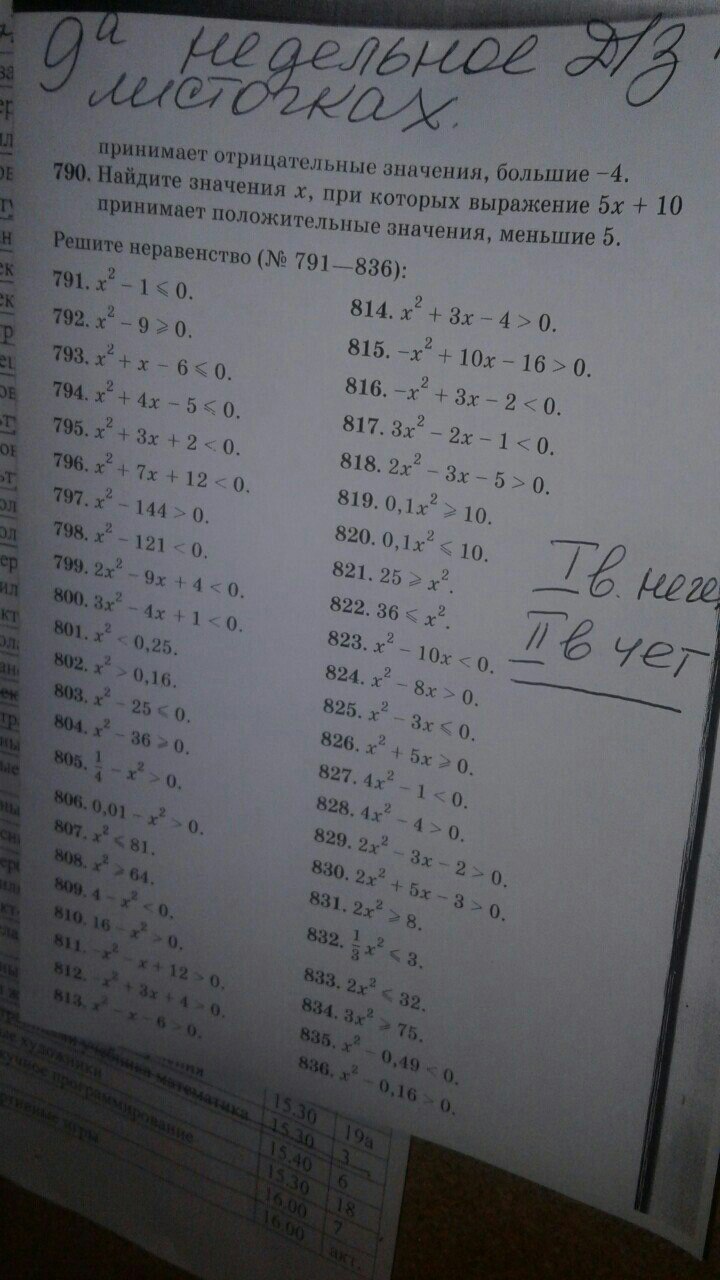 9а недельное Д/З
листочках.
принимает отрицательные значения, большие −4.
790. Найдите значения x, при которых выражение 5x + 10
принимает положительные значения, меньшие 5.
Решите неравенство (№ 791—836):
791. x² − 1 ⩽ 0.
792. x² − 9 ⩾ 0.
793. x² + x − 6 ⩽ 0.
794. x² + 4x − 5 ⩽ 0.
795. x² + 3x + 2 < 0.
796. x² + 7x + 12 < 0.
797. x² − 144 > 0.
798. x² − 121 < 0.
799. 2x² − 9x + 4 < 0.
800. 3x² − 4x + 1 < 0.
801. x² < 0,25.
802. x² > 0,16.
803. x² − 25 ⩽ 0.
804. x² − 36 ⩾ 0.
805. 1/4 − x² > 0.
806. 0,01 − x² > 0.
807. x² ⩽ 81.
808. x² ⩾ 64.
809. 4 − x² < 0.
810. 16 − x² > 0.
811. −x² − x + 12 > 0.
812. −x² + 3x + 4 > 0.
813. x² − x − 6 > 0.
814. x² + 3x − 4 > 0.
815. −x² + 10x − 16 > 0.
816. −x² + 3x − 2 < 0.
817. 3x² − 2x − 1 < 0.
818. 2x² − 3x − 5 > 0.
819. 0,1x² ⩾ 10.
820. 0,1x² ⩽ 10.
821. 25 ⩾ x².
822. 36 ⩽ x².
823. x² − 10x < 0.
824. x² − 8x > 0.
825. x² − 3x ⩽ 0.
826. x² + 5x ⩾ 0.
827. 4x² − 1 < 0.
828. 4x² − 4 > 0.
829. 2x² − 3x − 2 > 0.
830. 2x² + 5x − 3 > 0.
831. 2x² ⩾ 8.
832. 1/3 x² ⩽ 3.
833. 2x² ⩽ 32.
834. 3x² ⩾ 75.
835. x² − 0,49 < 0.
836. x² − 0,16 > 0.
I в. нече
II в чет
математика
художники
программирование
игры
15.30 19а
15.30 3
15.40 6
15.30 18
16.00 7
16.00 акт.